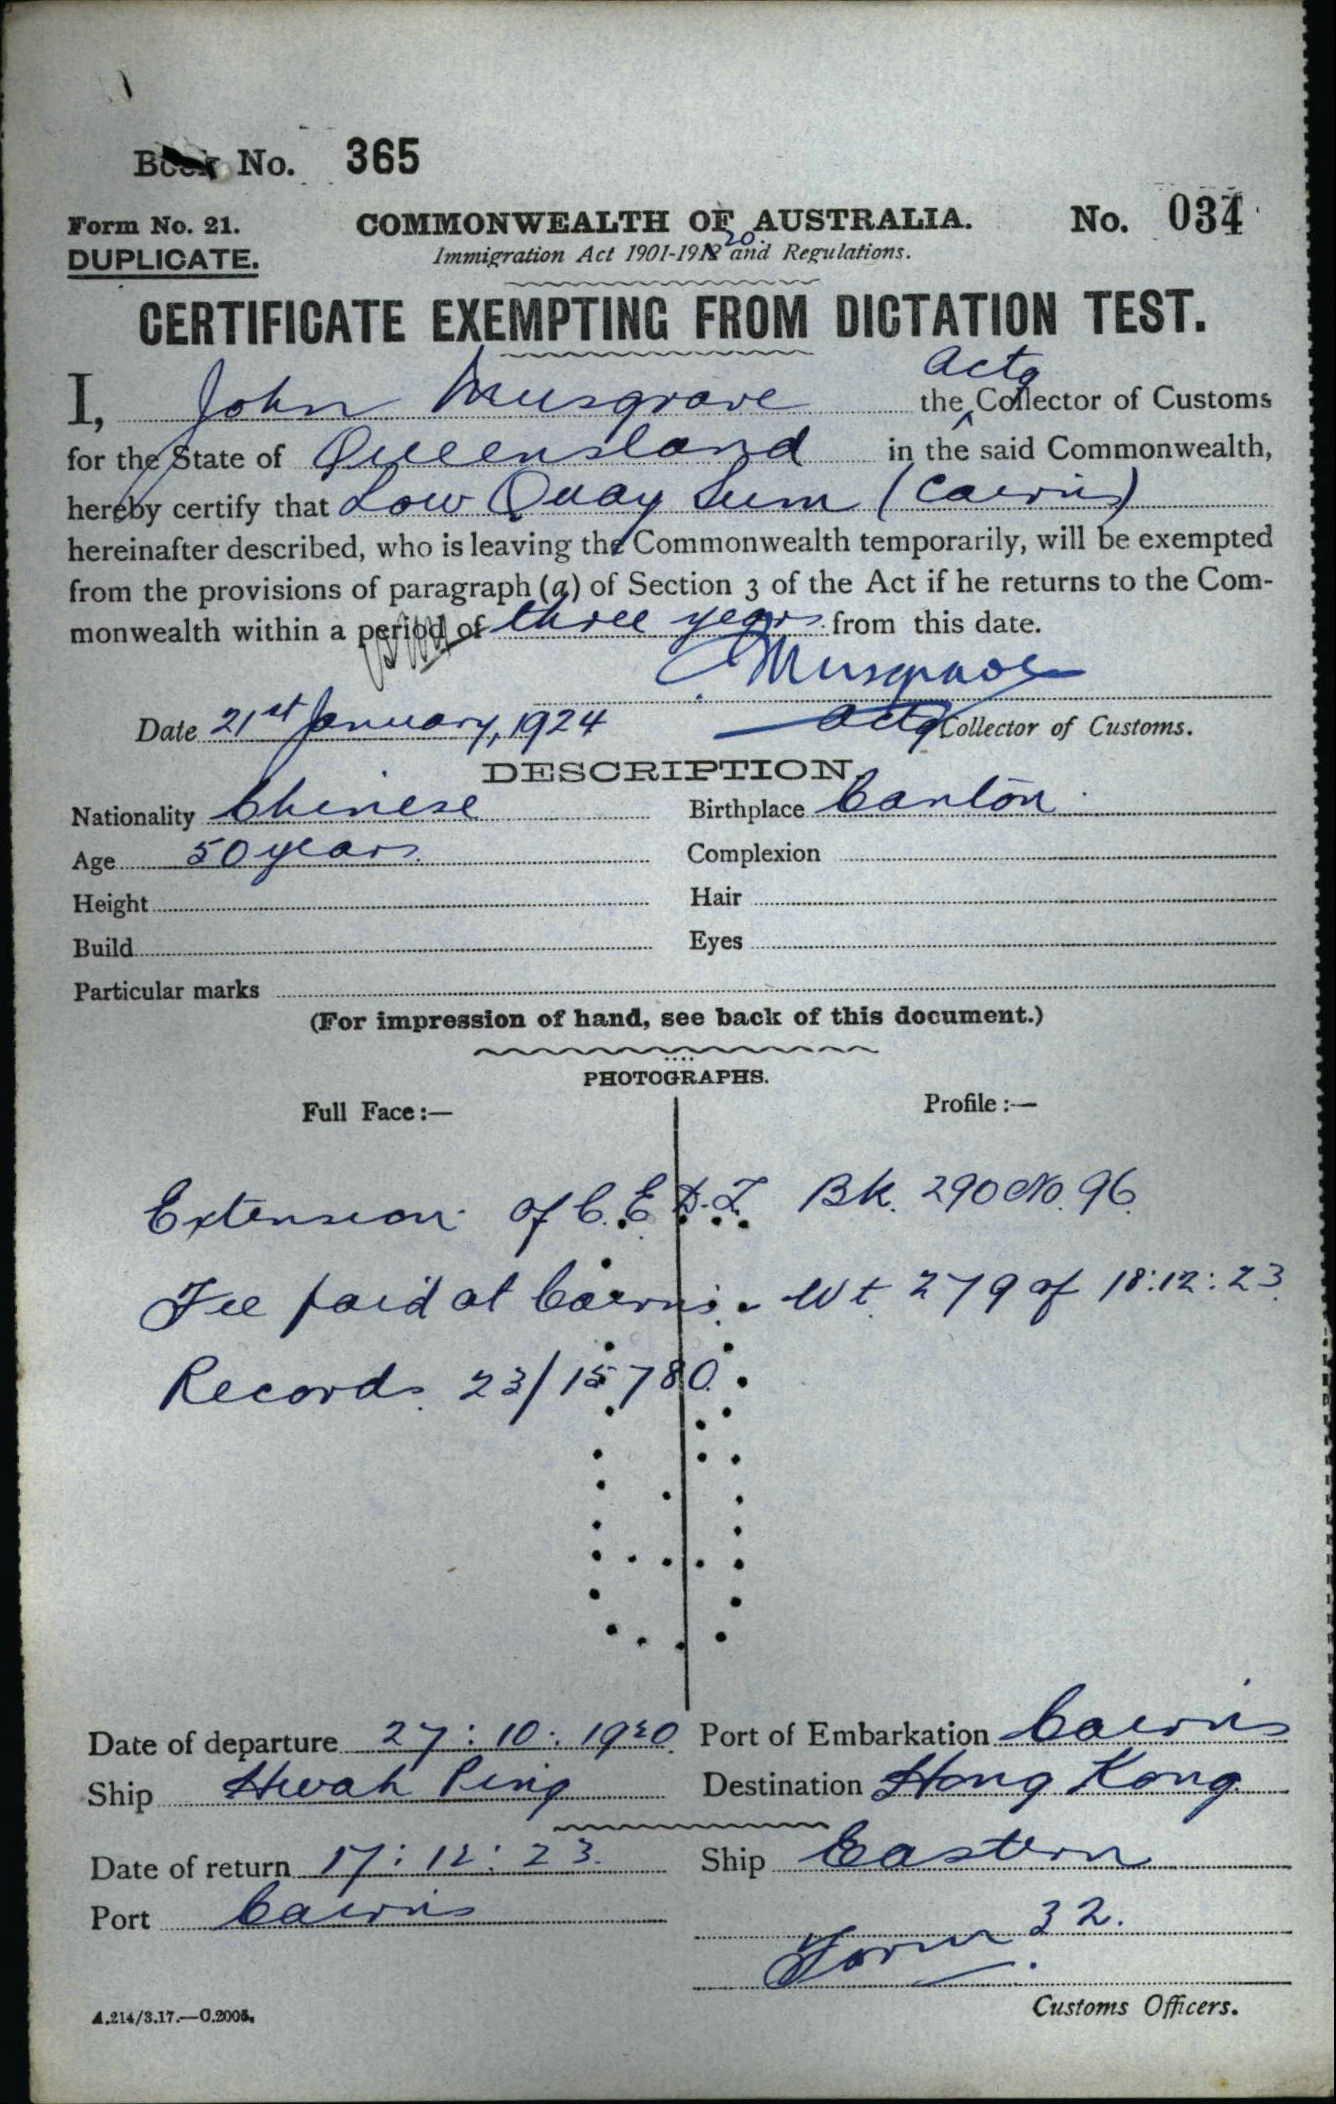 Book No. 365
Form No. 21. COMMONWEALTH OF AUSTRALIA. No. 034
DUPLICATE. Immigration Act 1901-1912 20 and Regulations.
CERTIFICATE EXEMPTING FROM DICTATION TEST.
I, John Musgrave the Actg Collector of Customs
for the State of Queensland in the said Commonwealth,
hereby certify that Low Quay Sum (Cairns)
hereinafter described, who is leaving the Commonwealth temporarily, will be exempted
from the provisions of paragraph (a) of Section 3 of the Act if he returns to the Com-
monwealth within a period of three years from this date.
Musgrave
Date 21st January, 1924 Actg Collector of Customs.
DESCRIPTION.
Nationality Chinese Birthplace Canton
Age 50 years Complexion
Height Hair
Build Eyes
Particular marks
(For impression of hand, see back of this document.)
PHOTOGRAPHS.
Full Face:— Profile:—
Extension of C.E.D.T. Bk. 290 No. 96
Fee paid at Cairns. Wt 279 of 18:12:23
Records 23/15780
Date of departure 27:10:1920 Port of Embarkation Cairns
Ship Hwah Ping Destination Hong Kong
Date of return 17:12:23. Ship Eastern
Port Cairns
Form 32.
Customs Officers.
A.214/3.17.—C.2005.